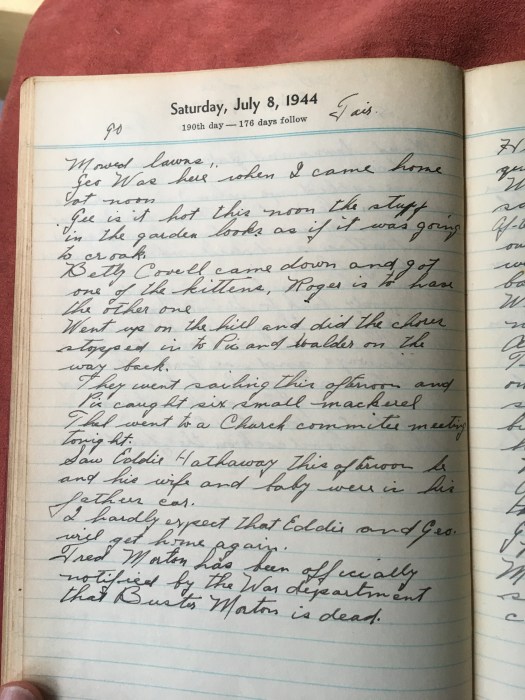 Saturday, July 8, 1944
190th day — 176 days follow
90
Fair
Mowed lawns.
Geo Was here when I came home
at noon
Gee is it hot this noon the stuff
in the garden looks as if it was going
to croak.
Betty Covell came down and got
one of the kittens, Roger is to have
the other one
Went up on the hill and did the chores
stopped in to Pic and walder on the
way back.
They went sailing this afternoon and
Pic caught six small mackerel
Thel went to a Church committee meeting
tonight.
Saw Eddie Hathaway this afternoon he
and his wife and baby were in his
fathers car.
I hardly expect that Eddie and Geo.
will get home again.
Fred Morton has been officially
notified by the War department
that Buster Morton is dead.